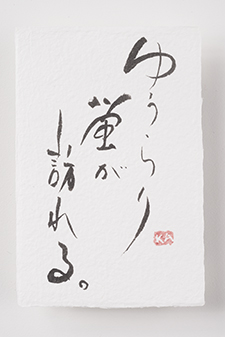 ゆうらり
蛍が
訪れる。